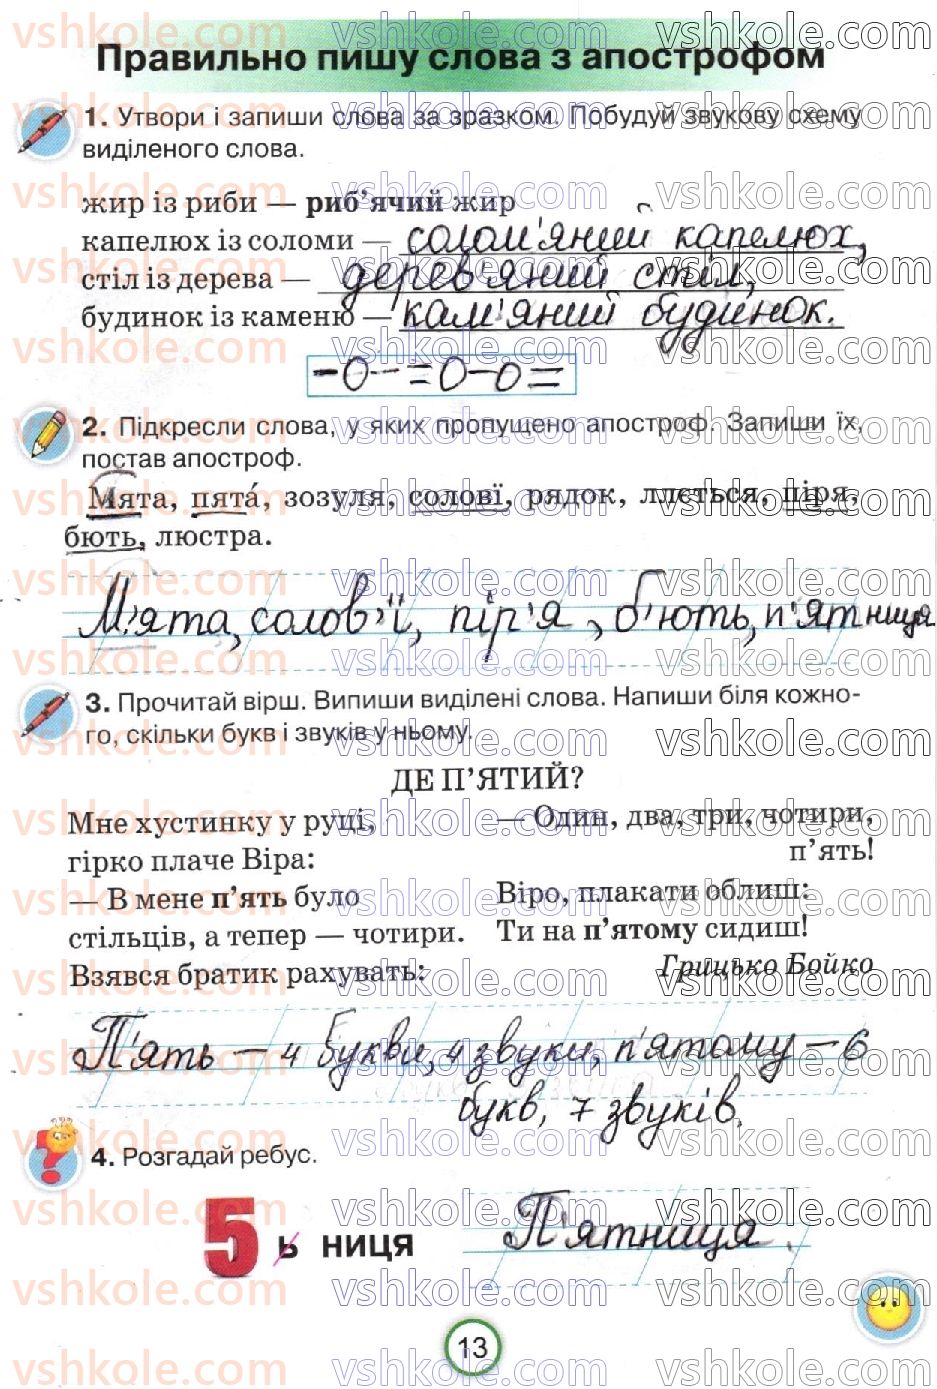 Правильно пишу слова з апострофом
1. Утвори і запиши слова за зразком. Побудуй звукову схему
виділеного слова.
жир із риби — риб’ячий жир
капелюх із соломи — солом'яний капелюх,
стіл із дерева — дерев'яний стіл,
будинок із каменю — кам'яний будинок.
2. Підкресли слова, у яких пропущено апостроф. Запиши їх,
постав апостроф.
Мята, пята́, зозуля, соловї, рядок, ллється, піря,
бють, люстра.
М'ята, солов'ї, пір'я, б'ють, п'ятниця
3. Прочитай вірш. Випиши виділені слова. Напиши біля кожно-
го, скільки букв і звуків у ньому.
ДЕ П’ЯТИЙ?
Мне хустинку у руці,
гірко плаче Віра:
— В мене п’ять було
стільців, а тепер — чотири.
Взявся братик рахувать:
— Один, два, три, чотири,
п’ять!
Віро, плакати облиш:
Ти на п’ятому сидиш!
Грицько Бойко
П'ять — 4 букви, 4 звуки, п'ятому — 6
букв, 7 звуків.
4. Розгадай ребус.
5 ь ниця
П'ятниця.
13
vshkole.com